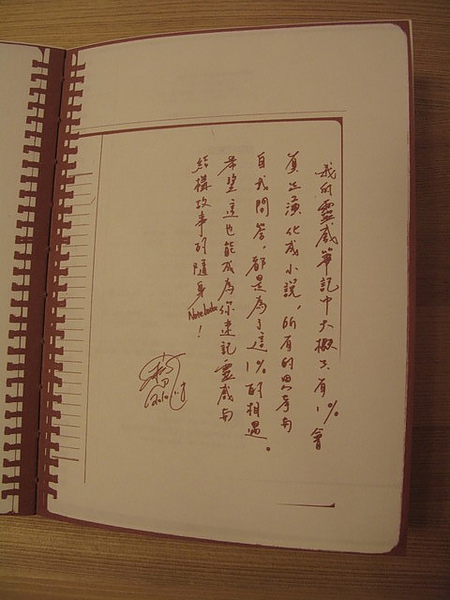 我的靈感筆記中大概只有1%會
真正演化成小說，所有的思考與
自我問答，都是為了這1%的相遇。
希望這也能成為你速記靈感與
結構故事的隨身Notebook！